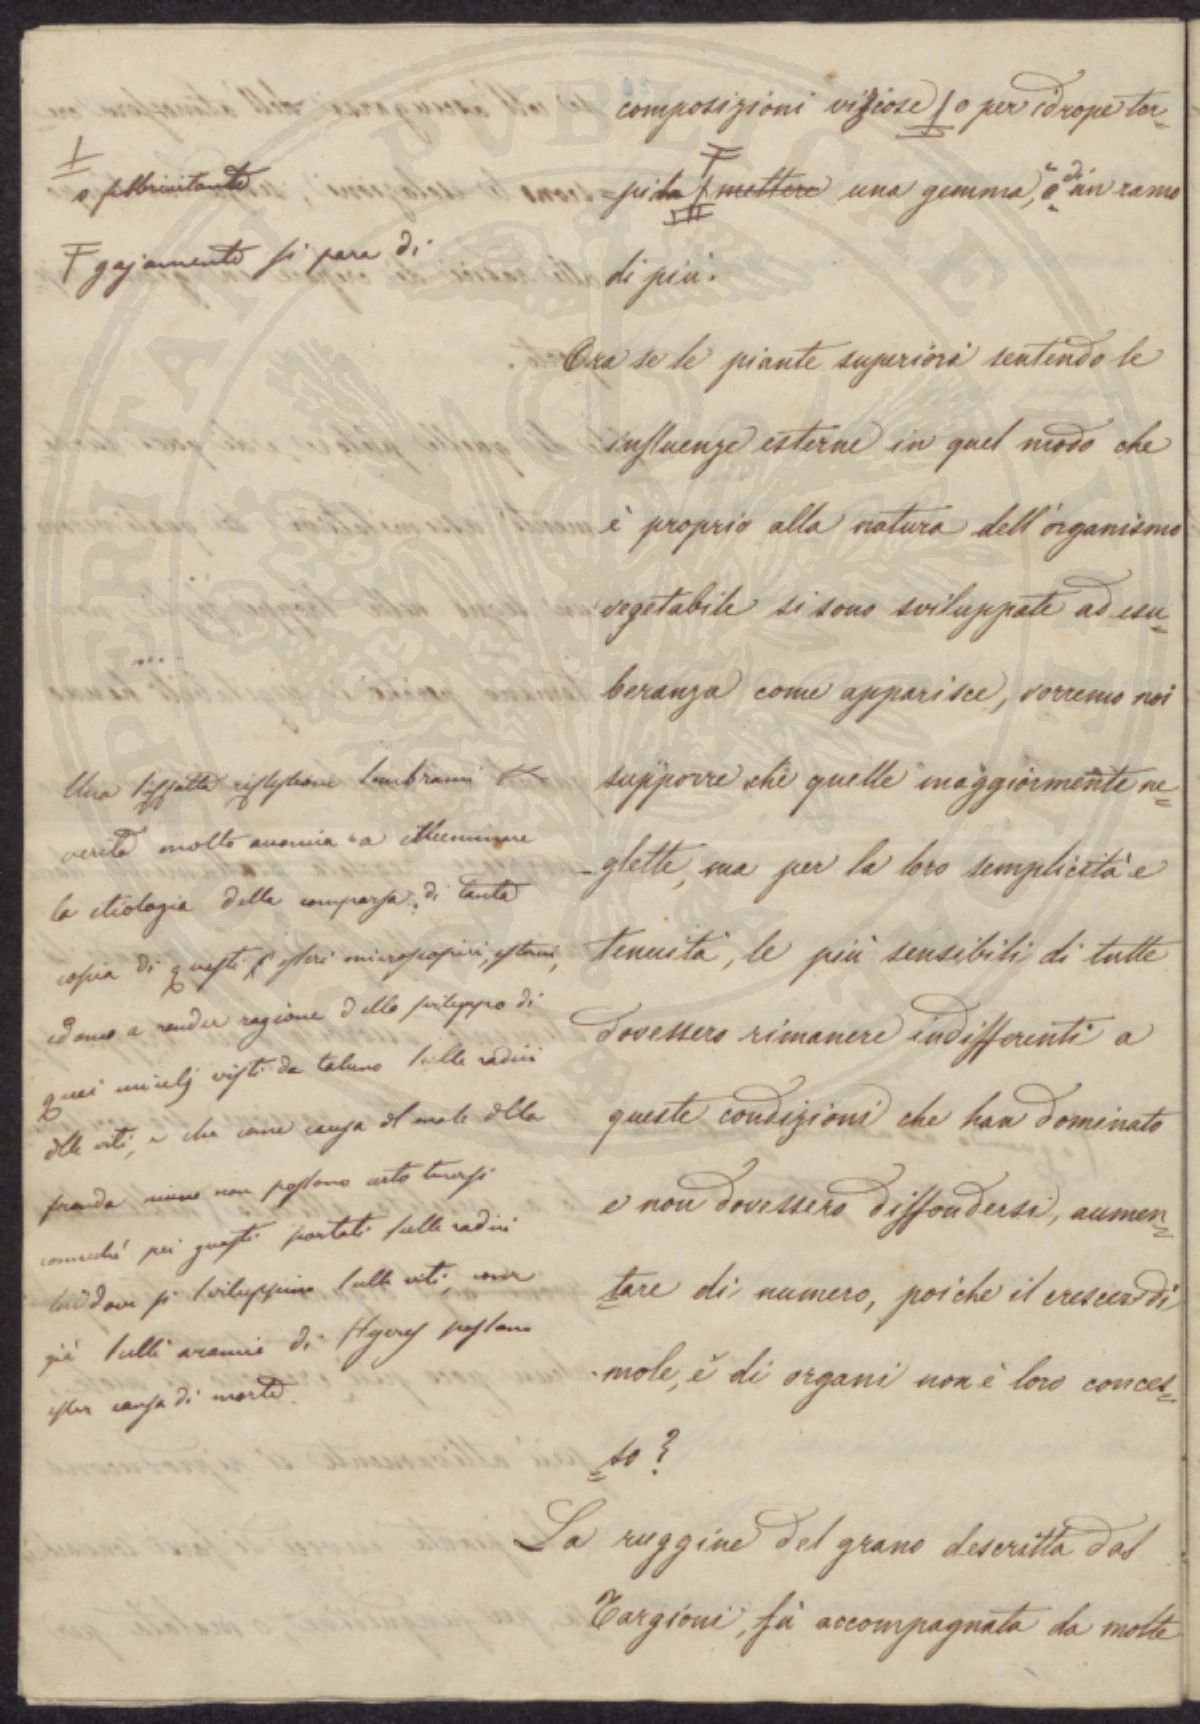 composizioni viziose / o per idrope tor-
pida mettere una gemma, o di un ramo
di più.
Ora se le piante superiori sentendo le
influenze esterne in quel modo che
è proprio alla natura dell'organismo
vegetabile si sono sviluppate ad esu-
beranza come apparisce, vorremo noi
supporre che quelle maggiormente ne-
glette, ma per la loro semplicità e
tenuità, le più sensibili di tutte
dovessero rimanere indifferenti a
queste condizioni che han dominato
e non dovessero diffondersi, aumen-
tare di numero, poiché il crescer di
mole, e di organi non è loro conces-
so?
La ruggine del grano descritta dal
Targioni, fù accompagnata da molte
o febbricitante
gajamente si para di
Una siffatta riflessione sembrami in
verità molto a illuminare
la etiologia della comparsa di tanta
copia di questi esseri microscopici esterni,
a render ragione dello sviluppo di
quei visti da taluno sulle radici
delle viti, e che come causa del male della
non possono certo tenersi
comeché poi questi portati sulle radici
laddove si sviluppino sulle viti, come
già sulli aranci di Hyeres possano
esser causa di morte.